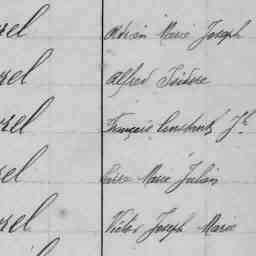 rel Adrien Marie Joseph
rel Alfred Isidore
rel François Constant Jh
rel Marie Julien
rel Victor Joseph Marie